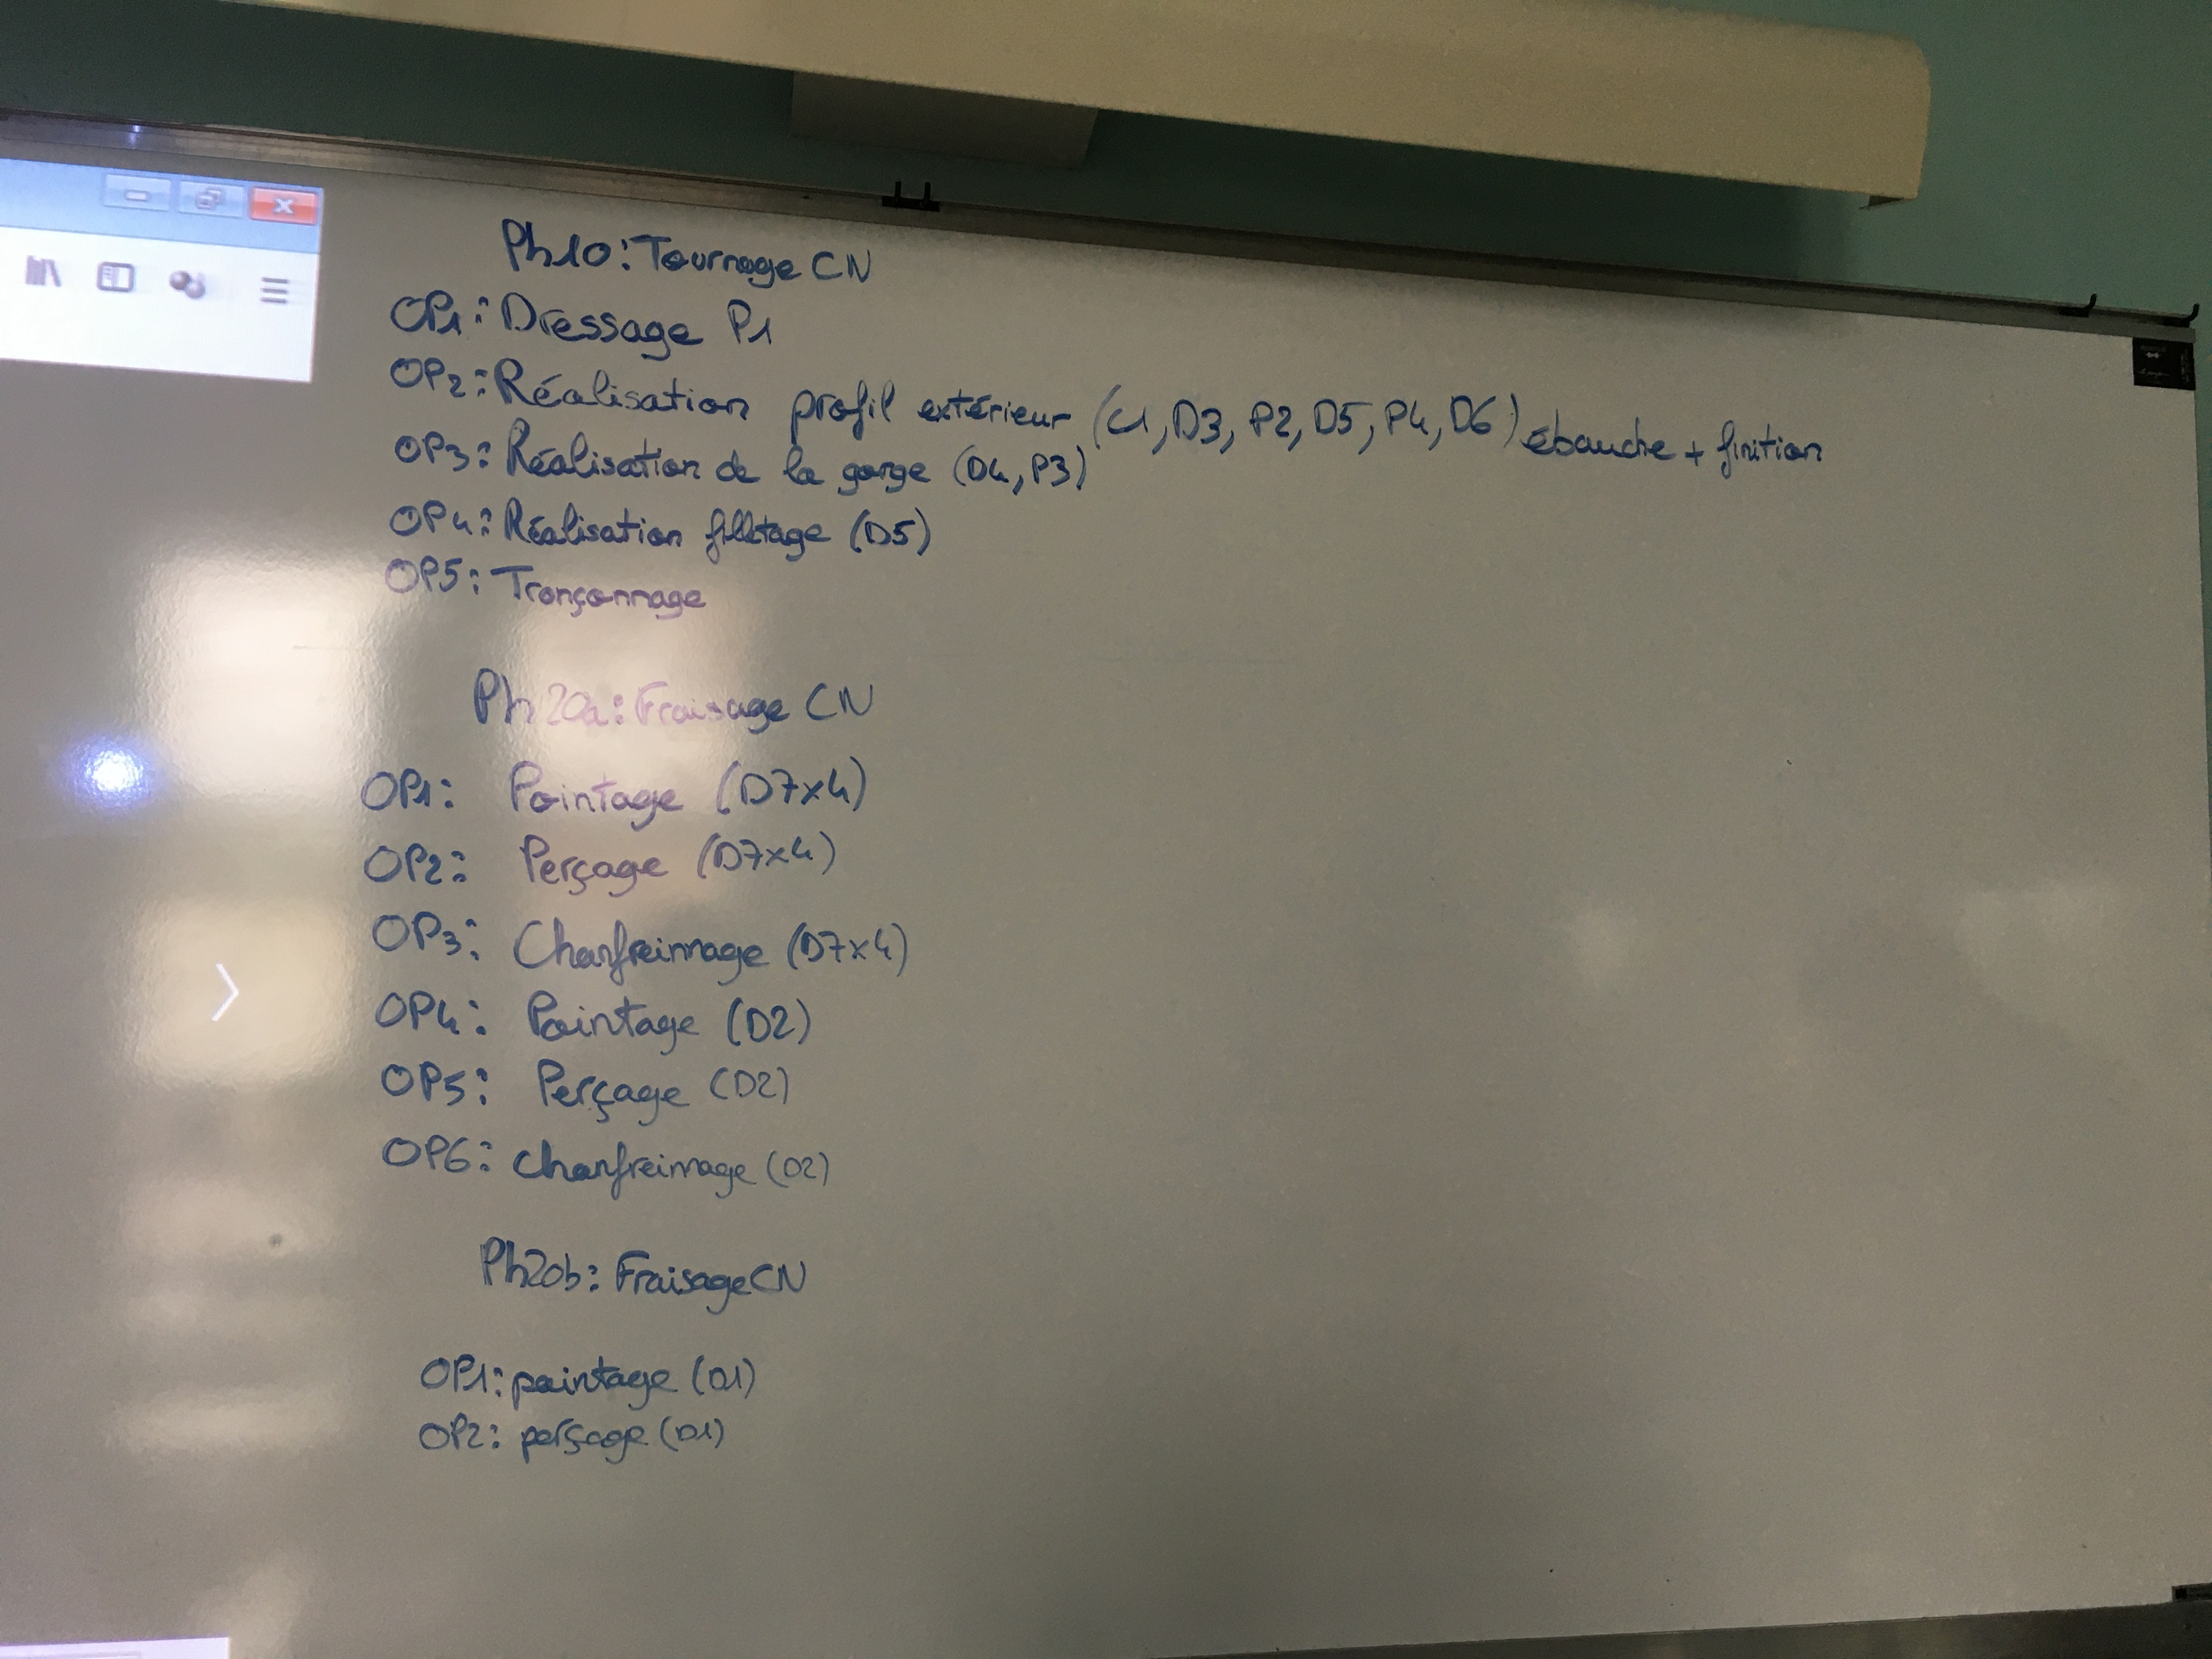 Ph10: Tournage CN
OP1: Dressage P1
OP2: Réalisation profil extérieur (C1, D3, P2, D5, P4, D6) ébauche + finition
OP3: Réalisation de la gorge (D4, P3)
OP4: Réalisation filletage (D5)
OP5: Tronçonnage
Ph20a: Fraisage CN
OP1: Pointage (D7x4)
OP2: Perçage (D7x4)
OP3: Chanfreinnage (D7x4)
OP4: Pointage (D2)
OP5: Perçage (D2)
OP6: Chanfreinage (D2)
Ph20b: Fraisage CN
OP1: pointage (D1)
OP2: perçage (D1)